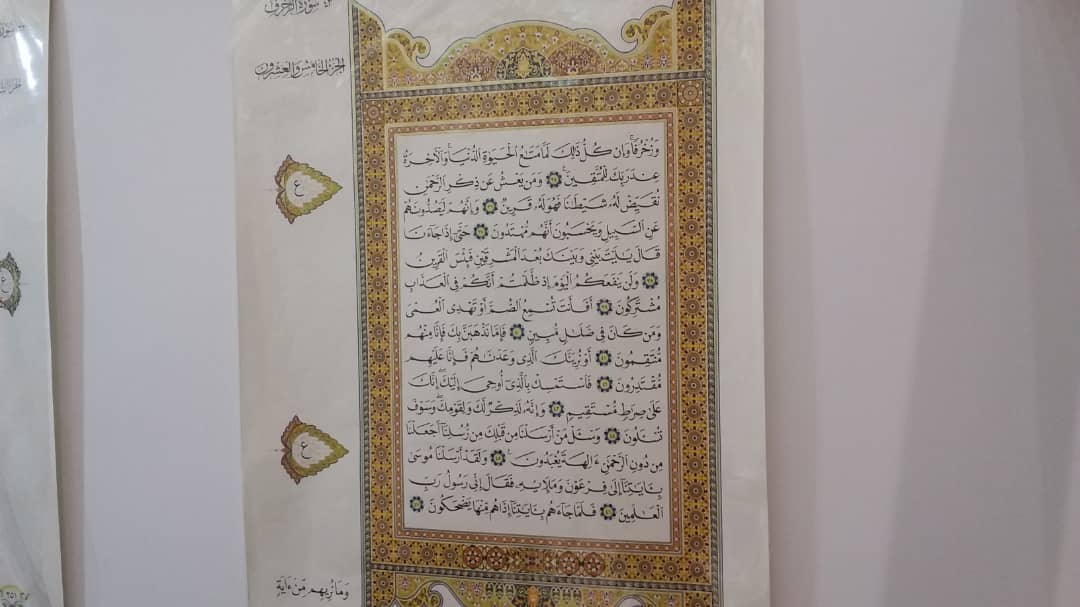 ٤٣ سورة الزخرف
الجزء الخامس والعشرون
وَزُخْرُفًا وَإِن كُلُّ ذَٰلِكَ لَمَّا مَتَٰعُ الْحَيَوٰةِ الدُّنْيَا وَالْآخِرَةُ
عِندَ رَبِّكَ لِلْمُتَّقِينَ ٣٥ وَمَن يَعْشُ عَن ذِكْرِ الرَّحْمَٰنِ
نُقَيِّضْ لَهُ شَيْطَٰنًا فَهُوَ لَهُ قَرِينٌ ٣٦ وَإِنَّهُمْ لَيَصُدُّونَهُمْ
عَنِ السَّبِيلِ وَيَحْسَبُونَ أَنَّهُم مُّهْتَدُونَ ٣٧ حَتَّىٰ إِذَا جَاءَنَا
قَالَ يَٰلَيْتَ بَيْنِي وَبَيْنَكَ بُعْدَ الْمَشْرِقَيْنِ فَبِئْسَ الْقَرِينُ
٣٨ وَلَن يَنفَعَكُمُ الْيَوْمَ إِذ ظَّلَمْتُمْ أَنَّكُمْ فِي الْعَذَابِ
مُشْتَرِكُونَ ٣٩ أَفَأَنتَ تُسْمِعُ الصُّمَّ أَوْ تَهْدِي الْعُمْيَ
وَمَن كَانَ فِي ضَلَٰلٍ مُّبِينٍ ٤٠ فَإِمَّا نَذْهَبَنَّ بِكَ فَإِنَّا مِنْهُم
مُّنتَقِمُونَ ٤١ أَوْ نُرِيَنَّكَ الَّذِي وَعَدْنَٰهُمْ فَإِنَّا عَلَيْهِم
مُّقْتَدِرُونَ ٤٢ فَاسْتَمْسِكْ بِالَّذِي أُوحِيَ إِلَيْكَ إِنَّكَ
عَلَىٰ صِرَٰطٍ مُّسْتَقِيمٍ ٤٣ وَإِنَّهُ لَذِكْرٌ لَّكَ وَلِقَوْمِكَ وَسَوْفَ
تُسْـَٔلُونَ ٤٤ وَسْـَٔلْ مَنْ أَرْسَلْنَا مِن قَبْلِكَ مِن رُّسُلِنَا أَجَعَلْنَا
مِن دُونِ الرَّحْمَٰنِ ءَالِهَةً يُعْبَدُونَ ٤٥ وَلَقَدْ أَرْسَلْنَا مُوسَىٰ
بِـَٔايَٰتِنَا إِلَىٰ فِرْعَوْنَ وَمَلَإِيهِ فَقَالَ إِنِّي رَسُولُ رَبِّ
الْعَٰلَمِينَ ٤٦ فَلَمَّا جَاءَهُم بِـَٔايَٰتِنَا إِذَا هُم مِّنْهَا يَضْحَكُونَ ٤٧
ع
ع
وَمَا نُرِيهِم مِّنْ ءَايَةٍ